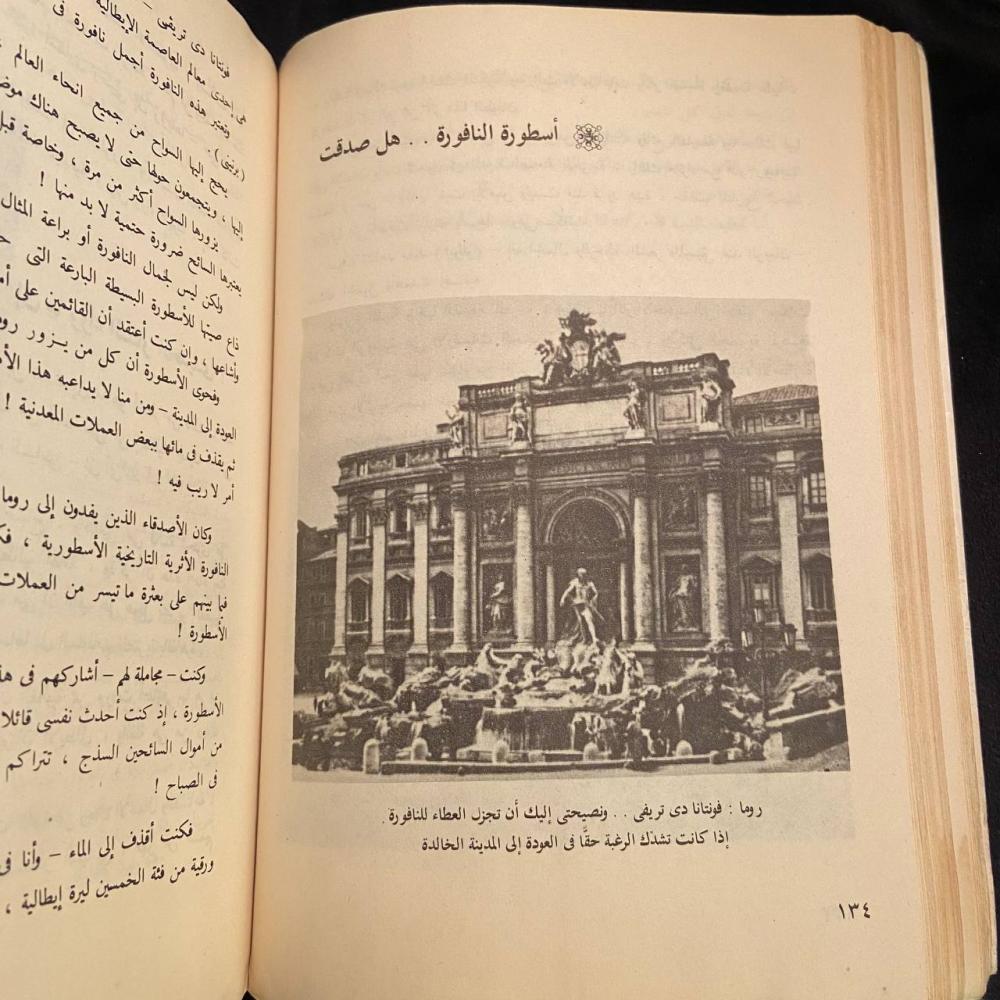 أسطورة النافورة . . هل صدقت
روما : فونتانا دى تريفى . . ونصيحتى إليك أن تجزل العطاء للنافورة
إذا كانت تشدّك الرغبة حقًّا فى العودة إلى المدينة الخالدة
١٣٤
فونتانا دى تريفى –
هى إحدى معالم العاصمة الإيطالية
وتعتبر هذه النافورة أجمل نافورة فى
(برنينى) .
يحج إليها السواح من جميع انحاء العالم
إليها ، ويتجمعون حولها حتى لا يصبح هناك
يزورها السواح أكثر من مرة ، وبخاصة
يعتبرها السائح ضرورة حتمية لا بد منها !
ولكن ليس لجمال النافورة أو براعة المثال
ذاع صيتها للأسطورة البسيطة البارعة التى
وأشاعها ، وإن كنت أعتقد أن القائمين على
وفحوى الأسطورة أن كل من يزور
العودة إلى المدينة – ومن منا لا يداعبه هذا
ثم يقذف فى مائها ببعض العملات المعدنية !
أمر لا ريب فيه !
وكان الأصدقاء الذين يفدون إلى روما
النافورة الأثرية التاريخية الأسطورية ،
فيما بينهم على بعثرة ما تيسر من العملات
الأسطورة !
وكنت – مجاملة لهم – أشاركهم فى
الأسطورة ، إذ كنت أحدث نفسى قائلا
من أموال السائحين السذج ، تتراكم
فى الصباح !
فكنت أقذف إلى الماء – وأنا فى
ورقية من فئة الخمسين ليرة إيطالية ،